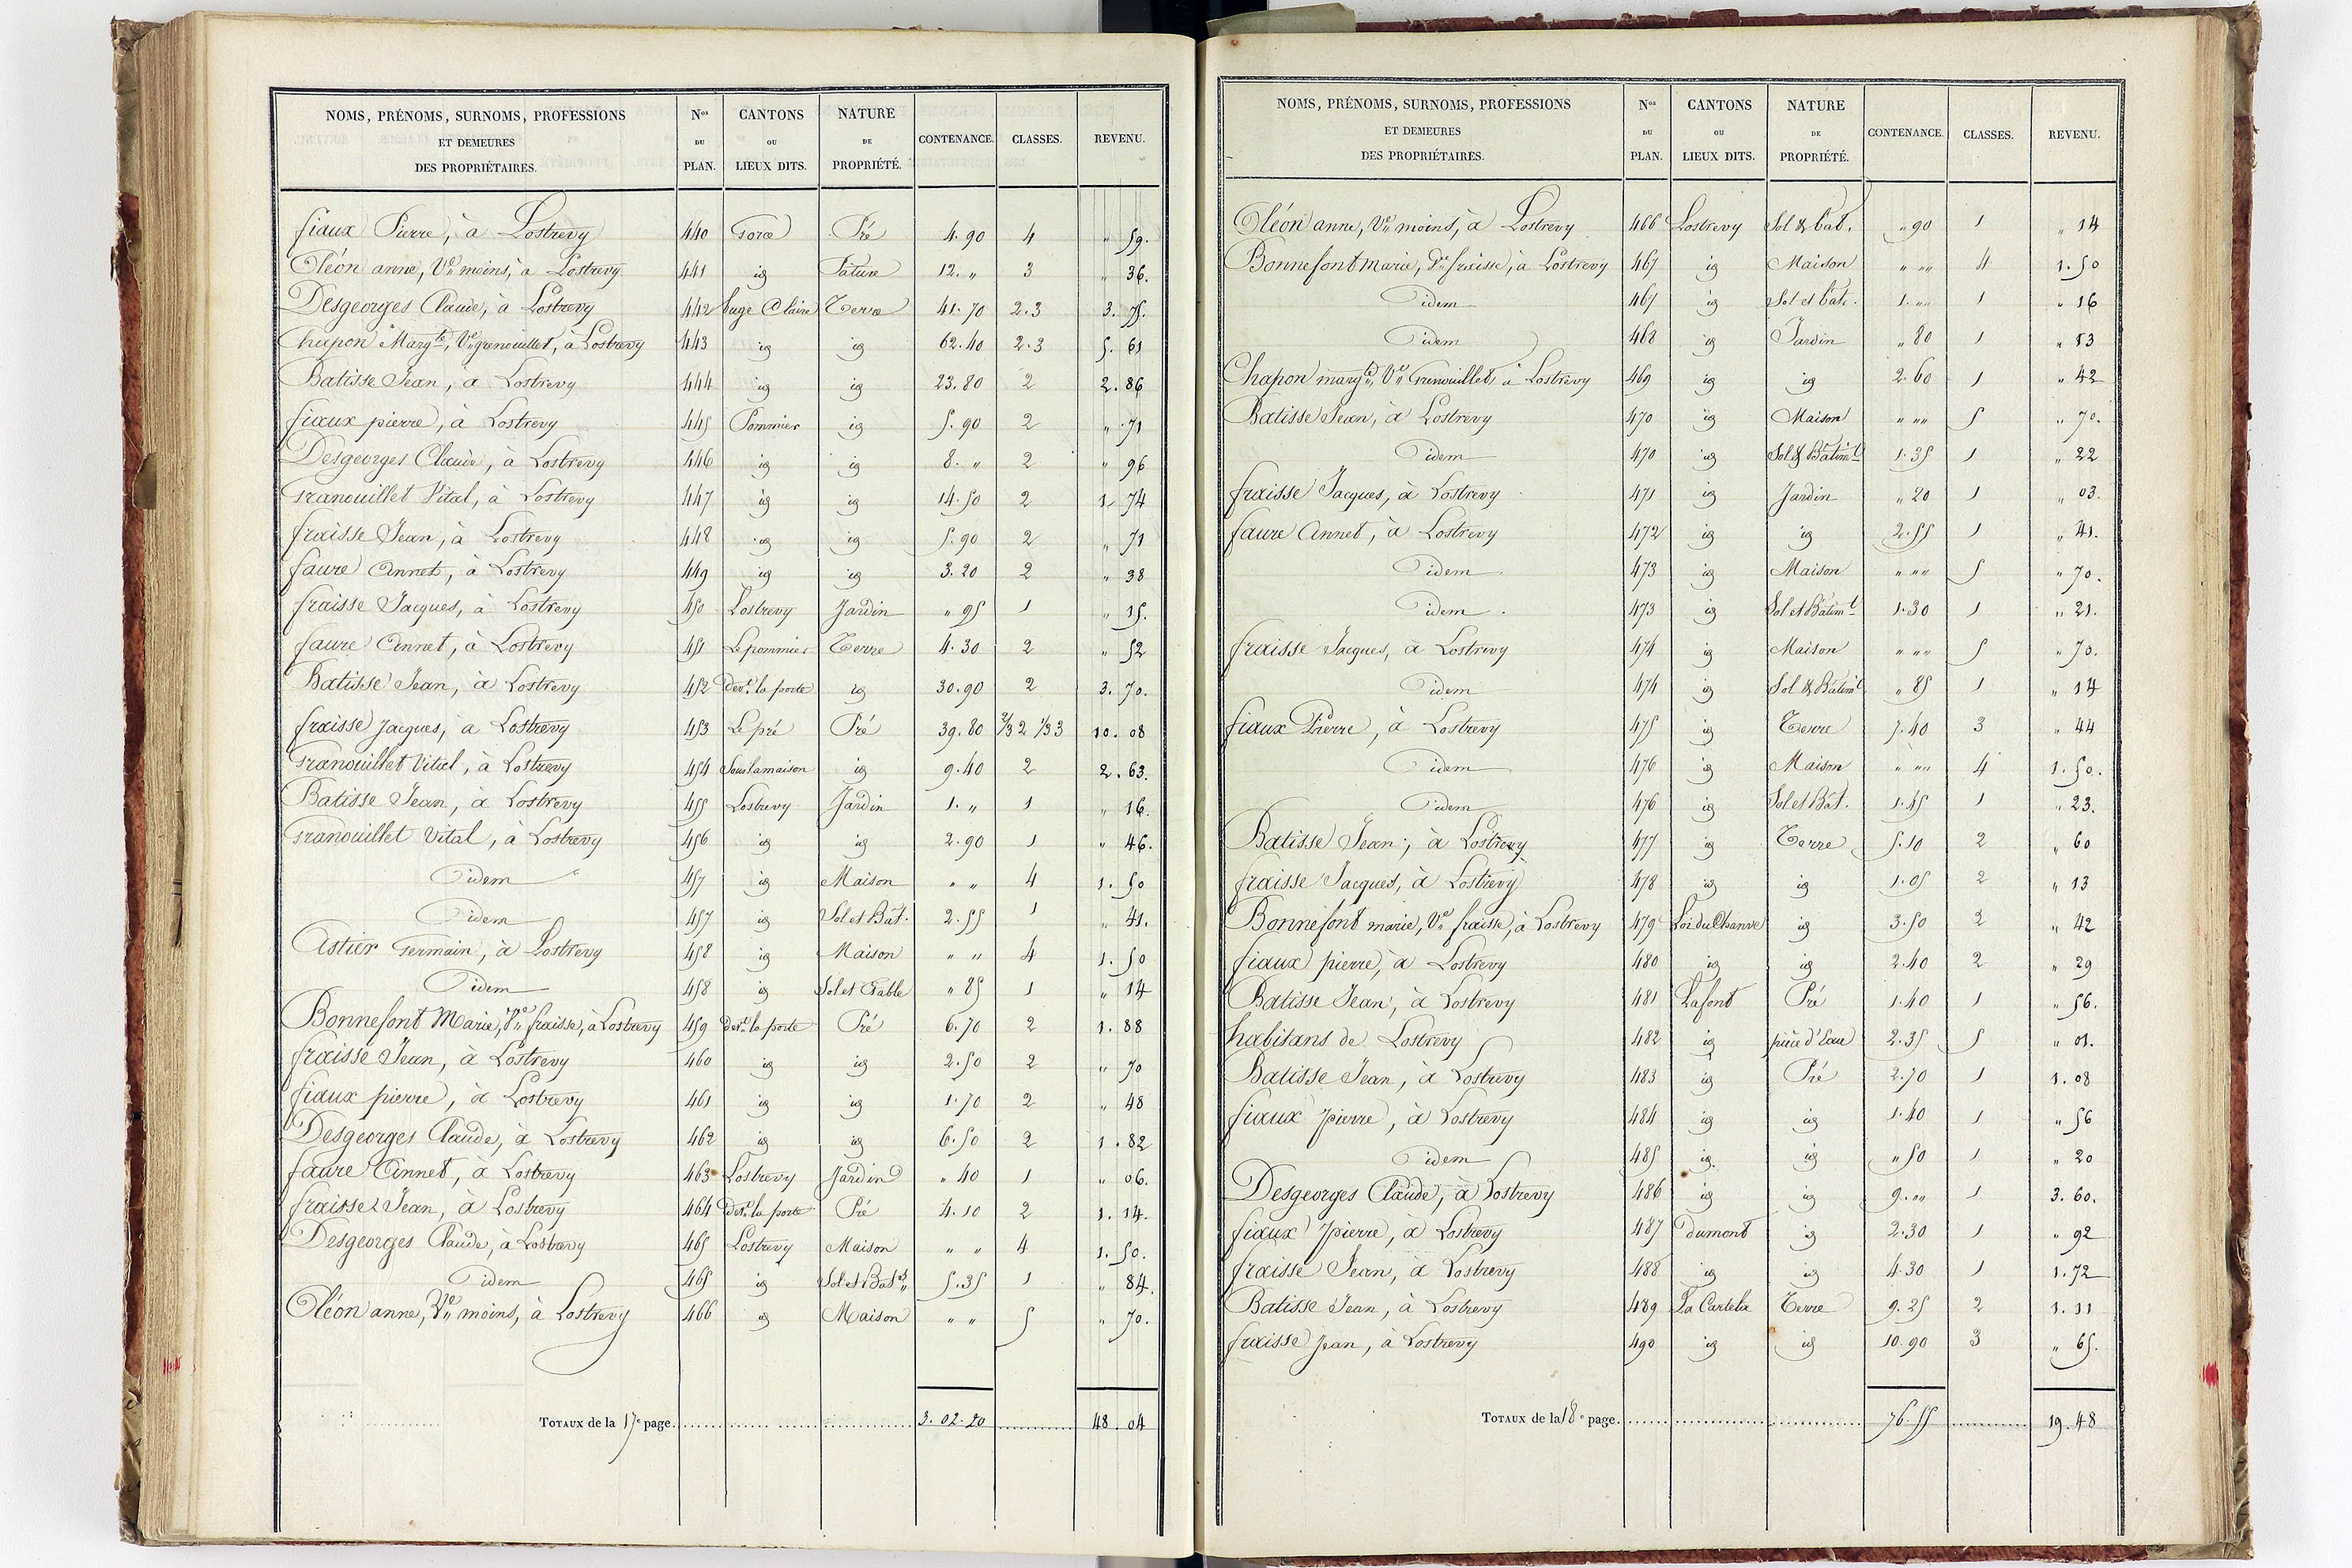 NOMS, PRÉNOMS, SURNOMS, PROFESSIONS ET DEMEURES DES PROPRIÉTAIRES. Nos DU PLAN. CANTONS OU LIEUX DITS. NATURE DE PROPRIÉTÉ. CONTENANCE. CLASSES. REVENU.
fiaux Pierre, à Lostrevy 440 Gorce Pré 4.90 4 " 59.
Oléon anne, Ve moins, à Lostrevy 441 id Pature 12. " 3 " 36.
Desgeorges Claude, à Lostrevy 442 buge Claire Terre 41.70 2.3 3.75.
Chapon Margte, Ve grenouillet, à Lostrevy 443 id id 62.40 2.3 5.61
Batisse Jean, à Lostrevy 444 id id 23.80 2 2.86
fiaux pierre, à Lostrevy 445 Pommier id 5.90 2 " 71
Desgeorges Claude, à Lostrevy 446 id id 8. " 2 " 96
Granouillet Vital, à Lostrevy 447 id id 14.50 2 1.74
fraisse Jean, à Lostrevy 448 id id 5.90 2 " 71
faure Annet, à Lostrevy 449 id id 3.20 2 " 38
fraisse Jacques, à Lostrevy 450 Lostrevy Jardin " 95 1 " 15.
faure Annet, à Lostrevy 451 Le pommier Terre 4.30 2 " 52
Batisse Jean, à Lostrevy 452 devt la porte id 30.90 2 3.70.
fraisse Jacques, à Lostrevy 453 Le pré Pré 39.80 2/3 2 1/3 3 10.08
Granouillet Vital, à Lostrevy 454 Sous la maison id 9.40 2 2.63.
Batisse Jean, à Lostrevy 455 Lostrevy Jardin 1. " 1 " 16.
Granouillet Vital, à Lostrevy 456 id id 2.90 1 " 46.
idem 457 id Maison " " 4 1.50
idem 457 id Sol et Bât. 2.55 1 " 41.
Astier Germain, à Lostrevy 458 id Maison " " 4 1.50
idem 458 id Sol et Etable " 85 1 " 14
Bonnefont Marie, Ve fraisse, à Lostrevy 459 devt la porte Pré 6.70 2 1.88
fraisse Jean, à Lostrevy 460 id id 2.50 2 " 70
fiaux pierre, à Lostrevy 461 id id 1.70 2 " 48
Desgeorges Claude, à Lostrevy 462 id id 6.50 2 1.82
faure Annet, à Lostrevy 463 Lostrevy Jardin " 40 1 " 06.
fraisse Jean, à Lostrevy 464 devt la porte Pré 4.10 2 1.14.
Desgeorges Claude, à Lostrevy 465 Lostrevy Maison " " 4 1.50.
idem 465 id Sol et Bats 5.35 1 " 84.
Oléon anne, Ve moins, à Lostrevy 466 id Maison " " 5 " 70.
TOTAUX de la 17e page. 3.02.20 48.04
NOMS, PRÉNOMS, SURNOMS, PROFESSIONS ET DEMEURES DES PROPRIÉTAIRES. Nos DU PLAN. CANTONS OU LIEUX DITS. NATURE DE PROPRIÉTÉ. CONTENANCE. CLASSES. REVENU.
Oléon anne, Ve moins, à Lostrevy 466 Lostrevy Sol & bat. " 90 1 " 14
Bonnefont Marie, Ve fraisse, à Lostrevy 467 id Maison " "" 4 1.50
idem 467 id Sol et bat. 1. "" 1 " 16
idem 468 id Jardin " 80 1 " 13
Chapon margte, Ve Grenouillet, à Lostrevy 469 id id 2.60 1 " 42
Batisse Jean, à Lostrevy 470 id Maison " "" 5 " 70.
idem 470 id Sol & Bâtimt 1.35 1 " 22
fraisse Jacques, à Lostrevy 471 id Jardin " 20 1 " 03.
faure Annet, à Lostrevy 472 id id 2.55 1 " 41.
idem 473 id Maison " "" 5 " 70.
idem 473 id Sol et Bâtimt 1.30 1 " 21.
fraisse Jacques, à Lostrevy 474 id Maison " "" 5 " 70.
idem 474 id Sol & Bâtimt " 85 1 " 14
fiaux Pierre, à Lostrevy 475 id Terre 7.40 3 " 44
idem 476 id Maison " "" 4 1.50.
idem 476 id Sol et Bât. 1.45 1 " 23.
Batisse Jean, à Lostrevy 477 id Terre 5.10 2 " 60
fraisse Jacques, à Lostrevy 478 id id 1.05 2 " 13
Bonnefont marie, Ve fraisse, à Lostrevy 479 Loi du Chanvre id 3.50 2 " 42
fiaux pierre, à Lostrevy 480 id id 2.40 2 " 29
Batisse Jean, à Lostrevy 481 Lafont Pré 1.40 1 " 56.
habitans de Lostrevy 482 id pièce d'Eau 2.35 5 " 01.
Batisse Jean, à Lostrevy 483 id Pré 2.70 1 1.08
fiaux pierre, à Lostrevy 484 id id 1.40 1 " 56
idem 485 id id " 50 1 " 20
Desgeorges Claude, à Lostrevy 486 id id 9. "" 1 3.60.
fiaux pierre, à Lostrevy 487 Dumont id 2.30 1 " 92
fraisse Jean, à Lostrevy 488 id id 4.30 1 1.72
Batisse Jean, à Lostrevy 489 La Cartela Terre 9.25 2 1.11
fraisse Jean, à Lostrevy 490 id id 10.90 3 " 65.
TOTAUX de la 18e page. 76.55 19.48